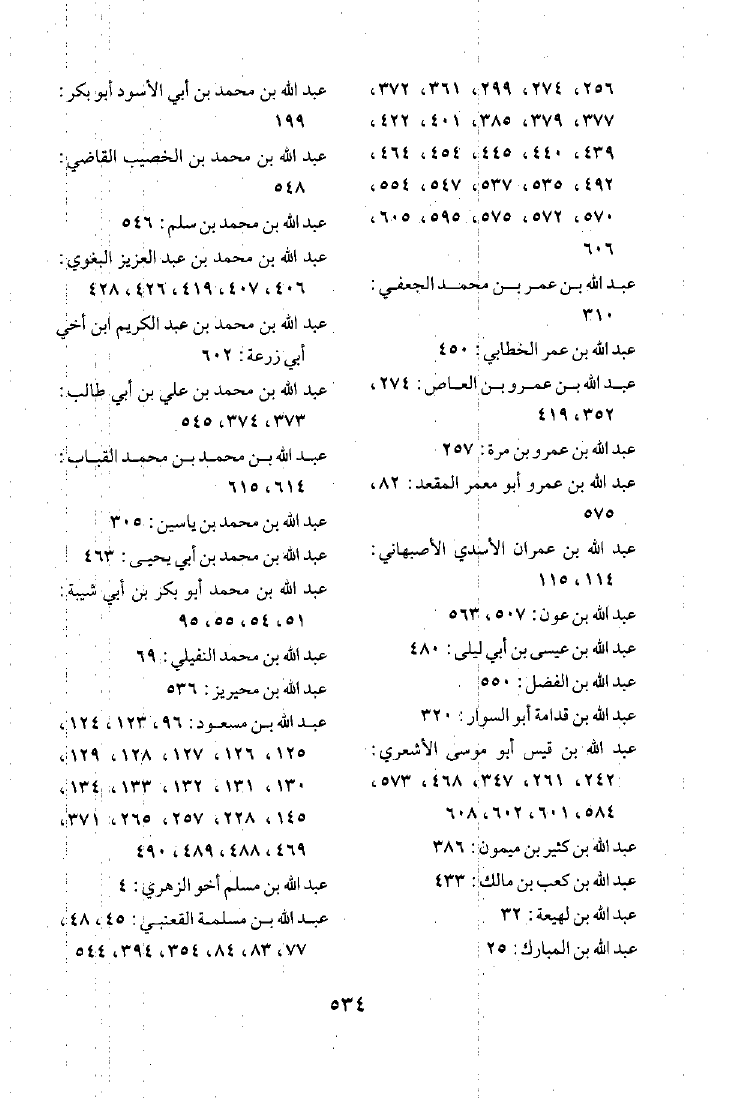 ٢٥٦، ٢٧٤، ٢٩٩، ٣٦١، ٣٧٢،
٣٧٧، ٣٧٩، ٣٨٥، ٤٠١، ٤٢٢،
٤٣٩، ٤٤٠، ٤٤٥، ٤٥٤، ٤٦٤،
٤٩٢، ٥٣٥، ٥٣٧، ٥٤٧، ٥٥٤،
٥٧٠، ٥٧٢، ٥٧٥، ٥٩٥، ٦٠٥،
٦٠٦
عبد الله بن عمر بن محمد الجعفي:
٣١٠
عبد الله بن عمر الخطابي: ٤٥٠
عبد الله بن عمرو بن العاص: ٢٧٤،
٣٥٢، ٤١٩
عبد الله بن عمرو بن مرة: ٢٥٧
عبد الله بن عمرو أبو معمر المقعد: ٨٢،
٥٧٥
عبد الله بن عمران الأسدي الأصبهاني:
١١٤، ١١٥
عبد الله بن عون: ٥٠٧، ٥٦٣
عبد الله بن عيسى بن أبي ليلى: ٤٨٠
عبد الله بن الفضل: ٥٥٠
عبد الله بن قدامة أبو السوار: ٣٢٠
عبد الله بن قيس أبو موسى الأشعري:
٢٤٢، ٢٦١، ٣٤٧، ٤٦٨، ٥٧٣،
٥٨٤، ٦٠١، ٦٠٢، ٦٠٨
عبد الله بن كثير بن ميمون: ٣٨٦
عبد الله بن كعب بن مالك: ٤٣٣
عبد الله بن لهيعة: ٣٢
عبد الله بن المبارك: ٢٥
عبد الله بن محمد بن أبي الأسود أبو بكر:
١٩٩
عبد الله بن محمد بن الخصيب القاضي:
٥٤٨
عبد الله بن محمد بن سلم: ٥٤٦
عبد الله بن محمد بن عبد العزيز البغوي:
٤٠٦، ٤٠٧، ٤١٩، ٤٢٦، ٤٢٨
عبد الله بن محمد بن عبد الكريم ابن أخي
أبي زرعة: ٦٠٢
عبد الله بن محمد بن علي بن أبي طالب:
٣٧٣، ٣٧٤، ٥٤٥
عبد الله بن محمد بن محمد القباب:
٦١٤، ٦١٥
عبد الله بن محمد بن ياسين: ٣٠٥
عبد الله بن محمد بن أبي يحيى: ٤٦٣
عبد الله بن محمد أبو بكر بن أبي شيبة:
٥١، ٥٤، ٥٥، ٩٥
عبد الله بن محمد النفيلي: ٦٩
عبد الله بن محيريز: ٥٣٦
عبد الله بن مسعود: ٩٦، ١٢٣، ١٢٤،
١٢٥، ١٢٦، ١٢٧، ١٢٨، ١٢٩،
١٣٠، ١٣١، ١٣٢، ١٣٣، ١٣٤،
١٤٥، ٢٢٨، ٢٥٧، ٢٦٥، ٣٧١،
٤٦٩، ٤٨٨، ٤٨٩، ٤٩٠
عبد الله بن مسلم أخو الزهري: ٤
عبد الله بن مسلمة القعنبي: ٤٥، ٤٨،
٧٧، ٨٣، ٨٤، ٣٥٤، ٣٩٤، ٥٤٤
٥٣٤